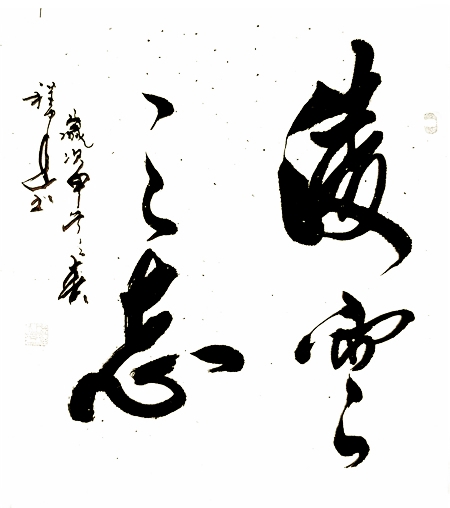 凌雲
之志
歲次甲之春
書